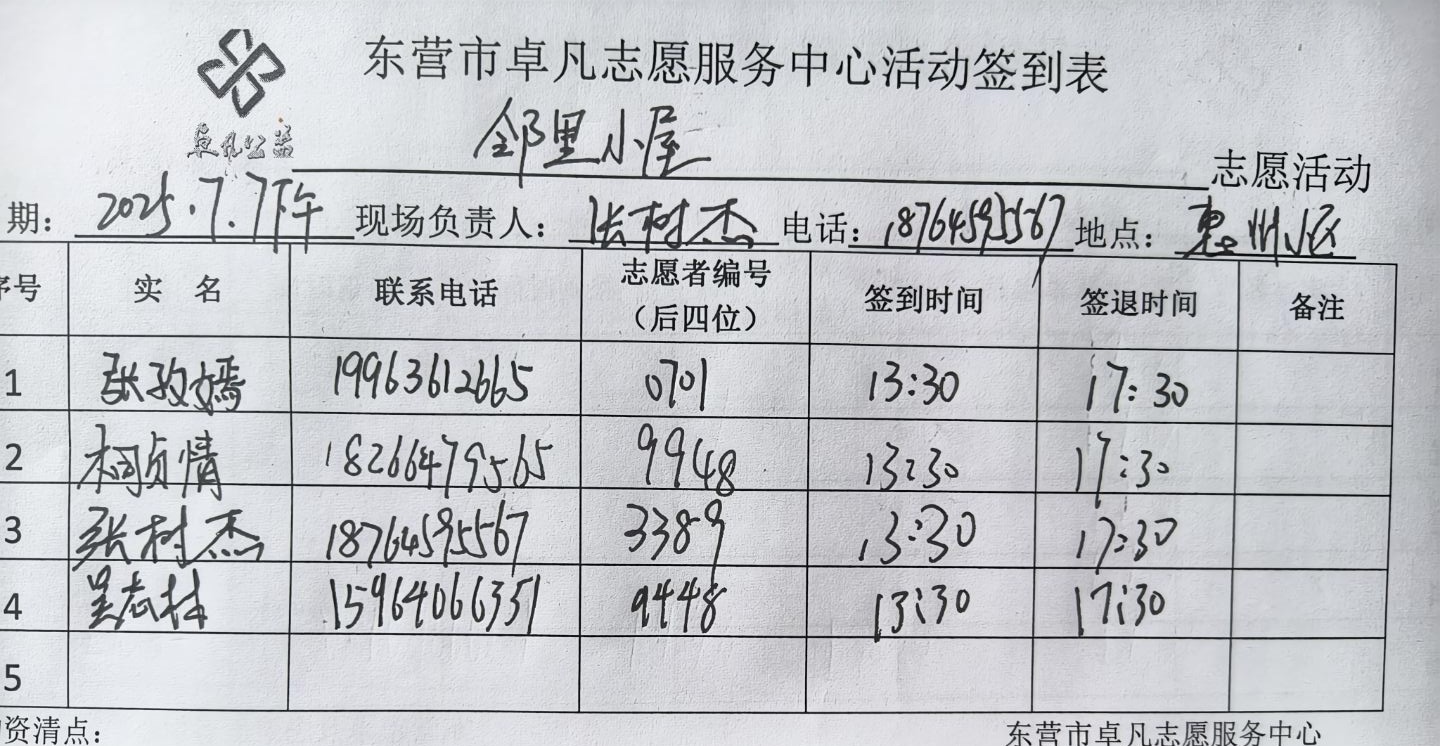 东营市卓凡志愿服务中心活动签到表
卓凡公益
邻里小屋 志愿活动
期: 2025.7.7下午 现场负责人: 张树杰 电话: 18764595567 地点: 惠州小区
序号 实 名 联系电话 志愿者编号(后四位) 签到时间 签退时间 备注
1 张孜嫣 19963612665 0701 13:30 17:30
2 柯贞情 18266479565 9948 13:30 17:30
3 张树杰 18764595567 3389 13:30 17:30
4 吴志林 15964066351 9448 13:30 17:30
5
资清点:
东营市卓凡志愿服务中心